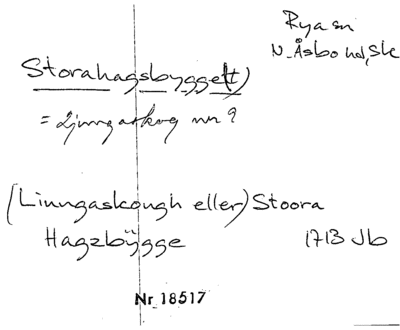 Rya sn
N. Åsbo hd, Sk
Storahagsbygge(t)
= Ljungaskog nr 9
(Liunngaskough eller) Stoora
Hagzbÿgge 1713 Jb
Nr 18517